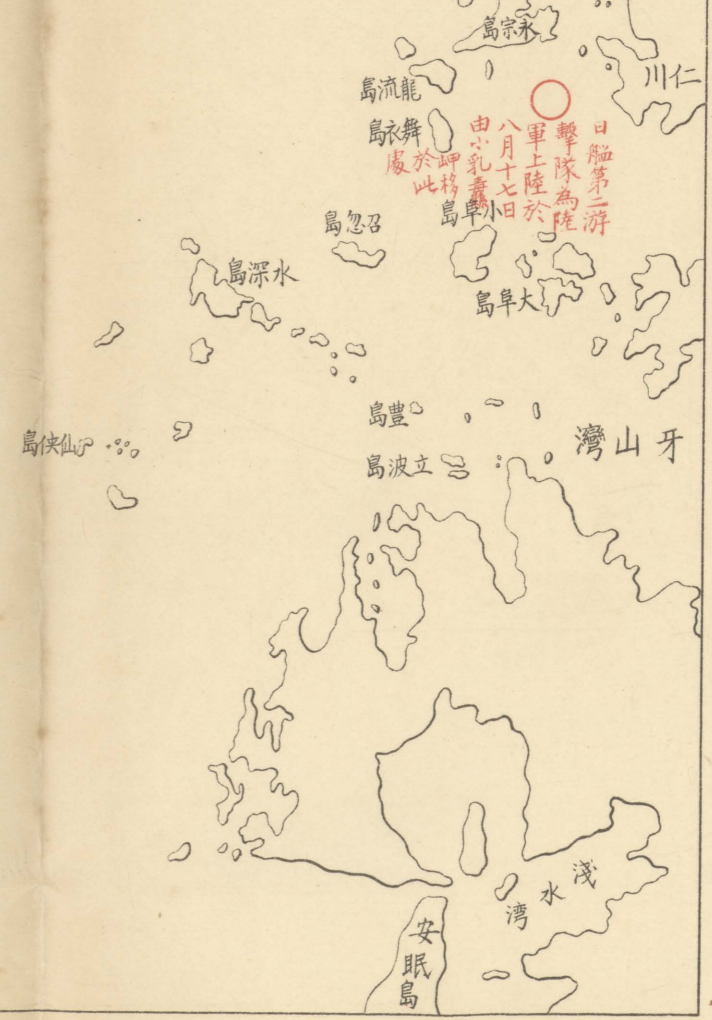 永宗島
仁川
龍流島
舞衣島
日艦第二游
擊隊為陸
軍上陸於
八月十七日
由小乳纛
岬移
於此
處
小阜島
召忽島
水深島
大阜島
豊島
牙山灣
立波島
仙俠島
淺水湾
安眠島